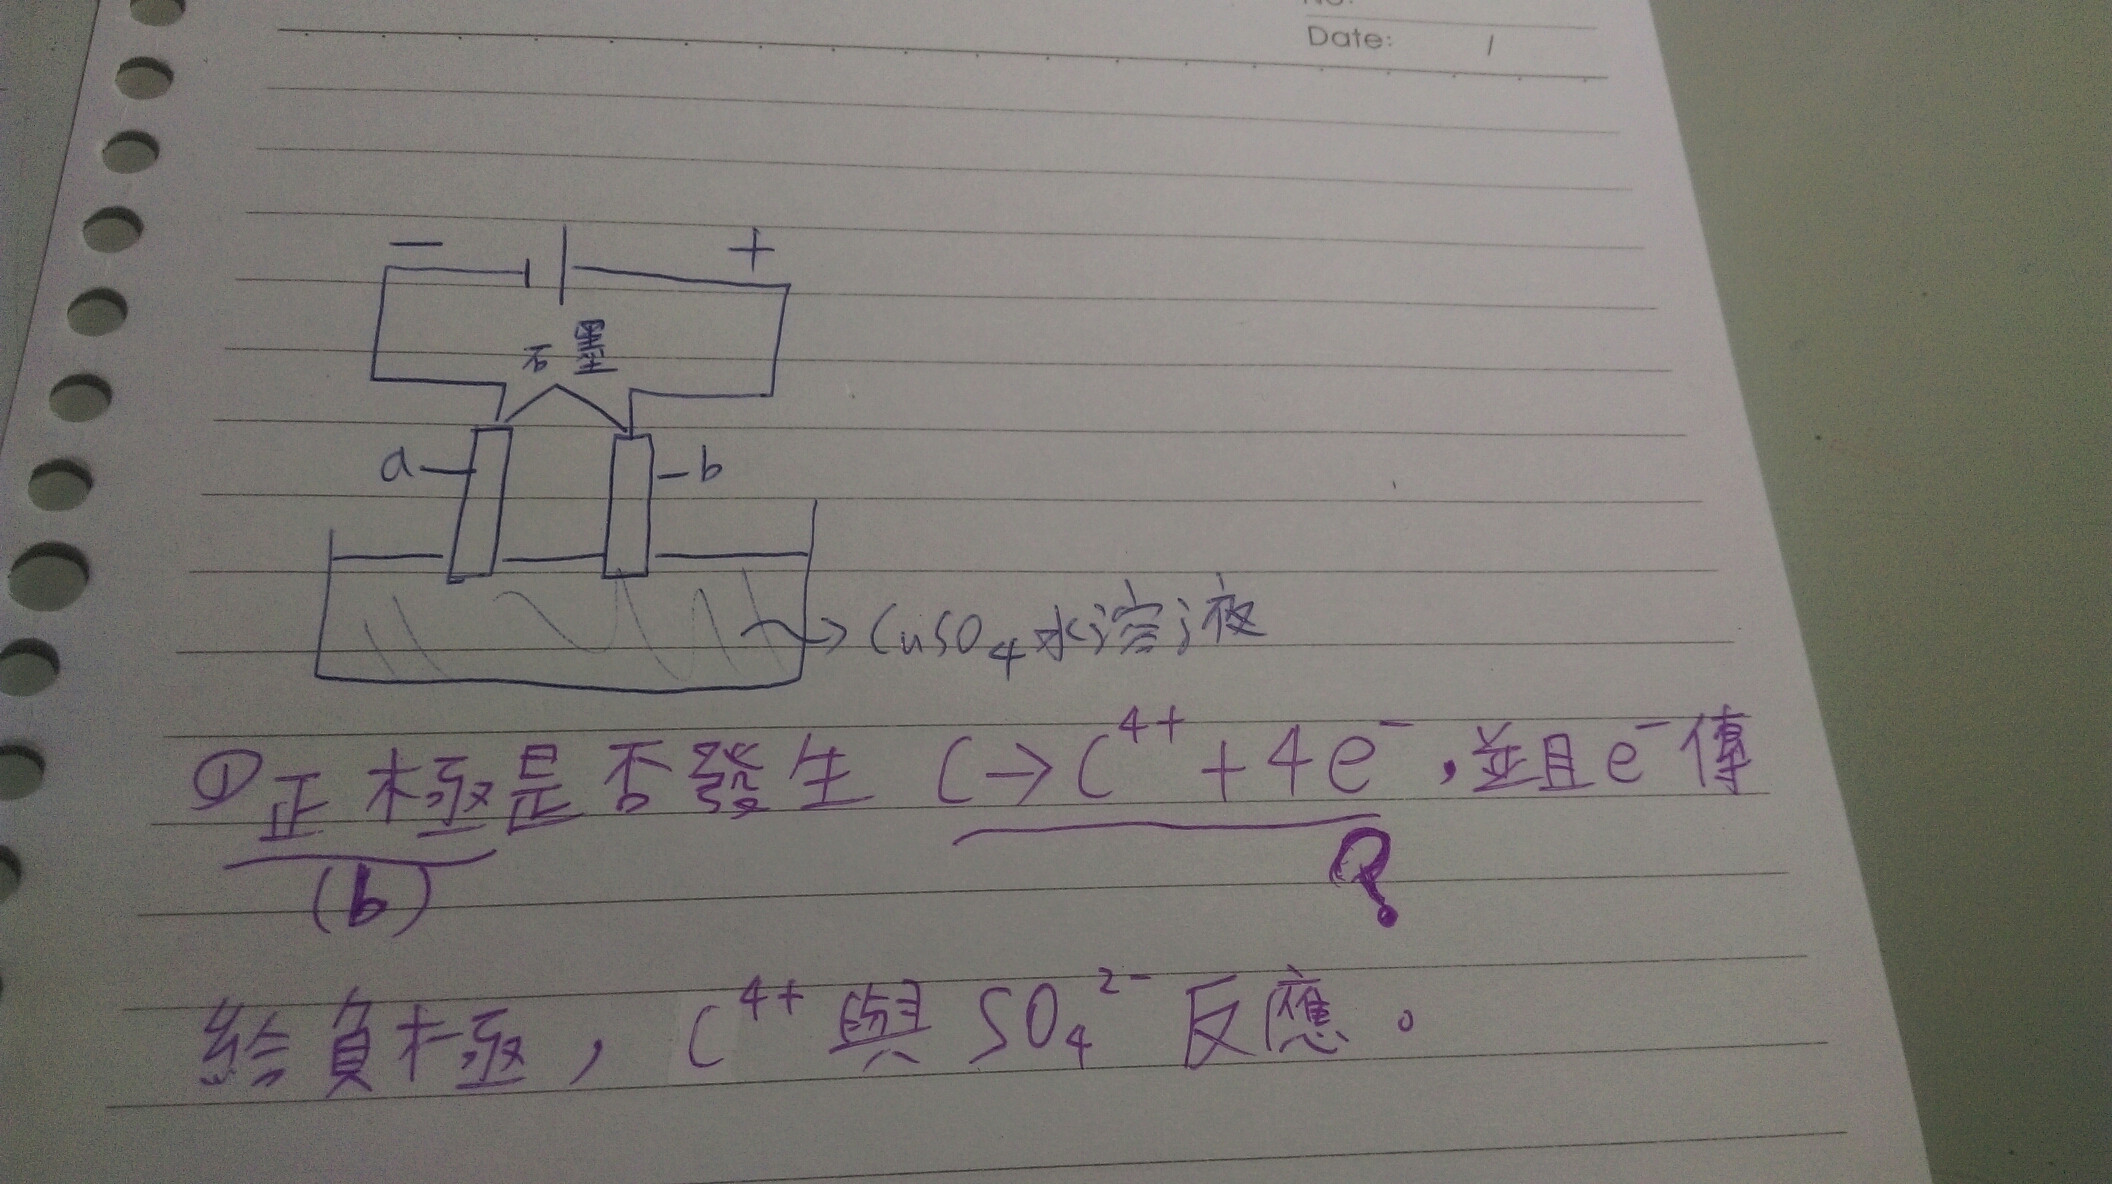 No:
Date: /
− +
石墨
a b
CuSO₄水溶液
①正極是否發生 C→C⁴⁺+4e⁻,並且e⁻傳
(b) ?
給負極,C⁴⁺與SO₄²⁻反應。